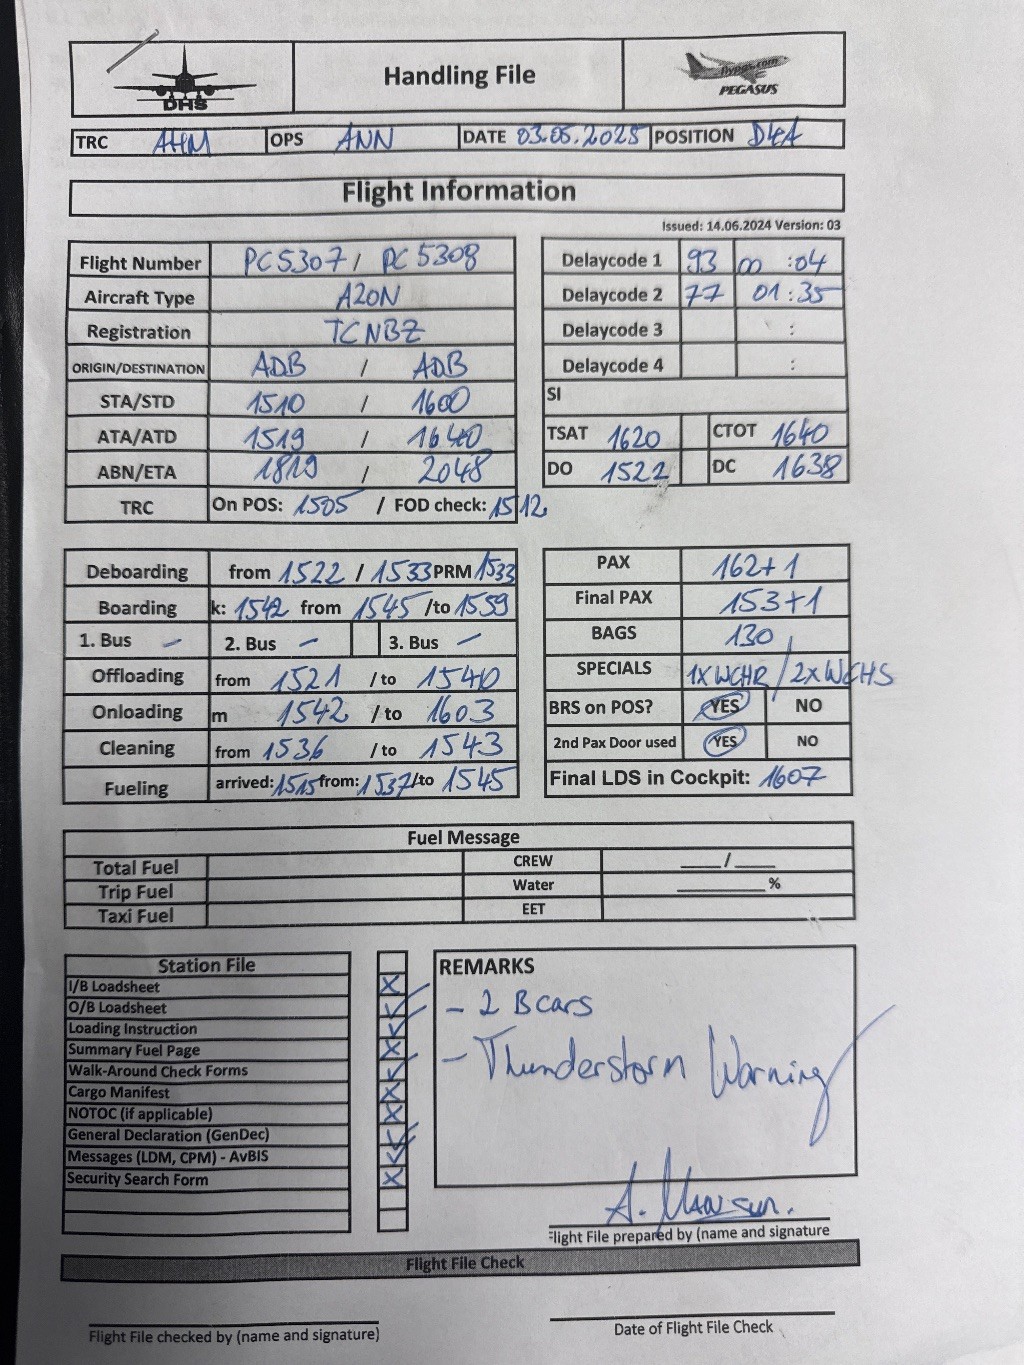 DHS
Handling File
flypgs.com
PEGASUS
TRC AHM OPS ANN DATE 03.05.2025 POSITION D14A
Flight Information
Issued: 14.06.2024 Version: 03
Flight Number PC5307 / PC5308
Aircraft Type A20N
Registration TCNBZ
ORIGIN/DESTINATION ADB / ADB
STA/STD 1510 / 1600
ATA/ATD 1519 / 1640
ABN/ETA 1819 / 2048
TRC On POS: 1505 / FOD check: 1512
Delaycode 1 93 00 :04
Delaycode 2 77 01 :35
Delaycode 3 :
Delaycode 4 :
SI
TSAT 1620 CTOT 1640
DO 1522 DC 1638
Deboarding from 1522 / 1533 PRM 1533
Boarding k: 1542 from 1545 /to 1559
1. Bus – 2. Bus – 3. Bus –
Offloading from 1521 / to 1540
Onloading m 1542 / to 1603
Cleaning from 1536 / to 1543
Fueling arrived: 1515 from: 1537 /to 1545
PAX 162+1
Final PAX 153+1
BAGS 130
SPECIALS 1X WCHR / 2X WCHS
BRS on POS? YES NO
2nd Pax Door used YES NO
Final LDS in Cockpit: 1607
Fuel Message
Total Fuel CREW ____/____
Trip Fuel Water _________%
Taxi Fuel EET
Station File
I/B Loadsheet X
O/B Loadsheet ✓
Loading Instruction ✓
Summary Fuel Page X
Walk-Around Check Forms ✓
Cargo Manifest X
NOTOC (if applicable) X
General Declaration (GenDec) ✓
Messages (LDM, CPM) - AvBIS ✓
Security Search Form X
REMARKS
- 2 B cars
- Thunderstorm Warning
A.
Flight File prepared by (name and signature
Flight File Check
Flight File checked by (name and signature)
Date of Flight File Check